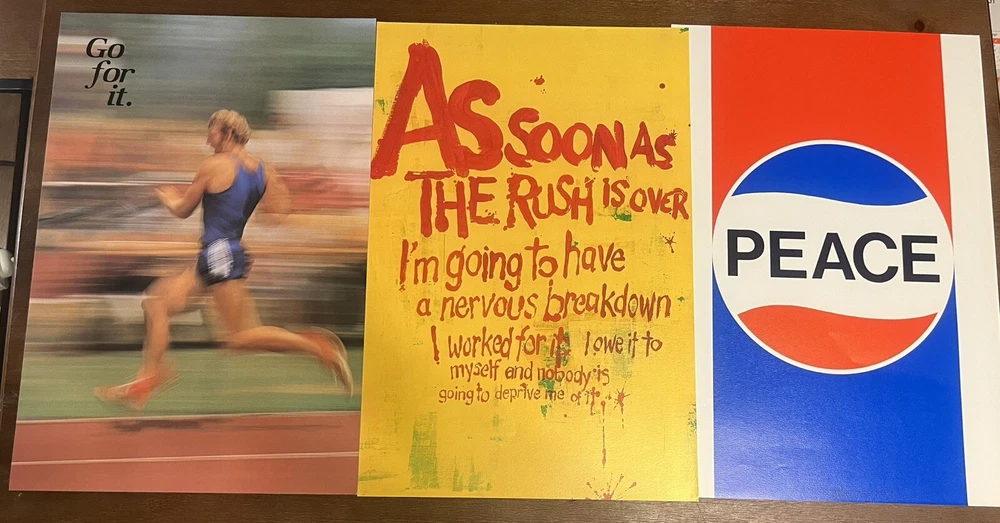 Go
for
it.
AS SOON AS
THE RUSH IS OVER
I'm going to have
a nervous breakdown
I worked for it. I owe it to
myself and nobody is
going to deprive me of it.
PEACE